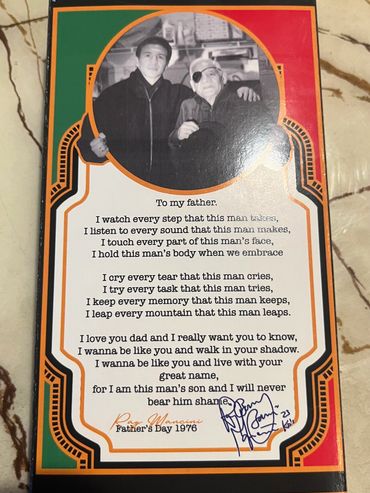 To my father.
I watch every step that this man takes,
I listen to every sound that this man makes,
I touch every part of this man's face,
I hold this man's body when we embrace
I cry every tear that this man cries,
I try every task that this man tries,
I keep every memory that this man keeps,
I leap every mountain that this man leaps.
I love you dad and I really want you to know,
I wanna be like you and walk in your shadow.
I wanna be like you and live with your
great name,
for I am this man's son and I will never
bear him shame.
Ray Mancini
Father's Day 1976